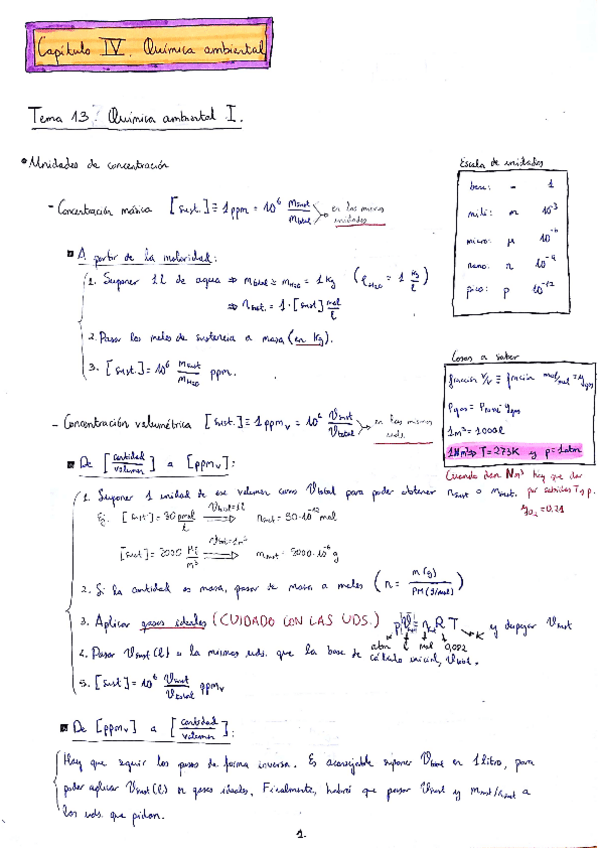 Capítulo IV. Química ambiental
Tema 13: Química ambiental I.
• Unidades de concentración
- Concentración másica [sust.] ≡ 1 ppm = 10⁶ m_sust/m_total → en las mismas unidades
▪ A partir de la molaridad:
1. Suponer 1 l de agua ⇒ m_total ≃ m_H2O = 1 kg (ρ_H2O = 1 kg/l)
⇒ n_sust. = 1·[sust] mol/l
2. Pasar los moles de sustancia a masa (en kg).
3. [sust.] = 10⁶ m_sust/m_H2O ppm.
Escala de unidades
base: - 1
mili: m 10⁻³
micro: μ 10⁻⁶
nano: n 10⁻⁹
pico: p 10⁻¹²
Cosas a saber
fracción V/V ≡ fracción mol/mol = y_gas
P_gas = P_total · y_gas
1m³ = 1000 l
1Nm³ ⇒ T = 273K y p = 1atm
Cuando dan Nm³ hay que dar
por sabidas T y p.
y_O2 = 0.21
- Concentración volumétrica [sust.] ≡ 1 ppm_v = 10⁶ V_sust/V_total → en las mismas uds.
▪ De [cantidad/volumen] a [ppm_v]:
1. Suponer 1 unidad de ese volumen como V_total para poder obtener n_sust o m_sust.
Ej. [sust] = 90 pmol/l V_total=1l ⇒ n_sust = 90·10⁻¹² mol
[sust] = 9000 μg/m³ V_total=1m³ ⇒ m_sust = 9000·10⁻⁶ g
2. Si la cantidad es masa, pasar de masa a moles (n = m(g)/PM(g/mol))
3. Aplicar gases ideales (CUIDADO CON LAS UDS.) p V = n R T y despejar V_sust
atm l mol 0,082 K
4. Pasar V_sust(l) a la mismas uds. que la base de cálculo inicial, V_total.
5. [sust] = 10⁶ V_sust/V_total ppm_v
▪ De [ppm_v] a [cantidad/volumen]:
Hay que seguir los pasos de forma inversa. Es aconsejable suponer V_total en 1 litro, para
poder aplicar V_sust(l) en gases ideales. Finalmente, habrá que pasar V_total y m_sust/n_sust a
las uds. que pidan.
1.